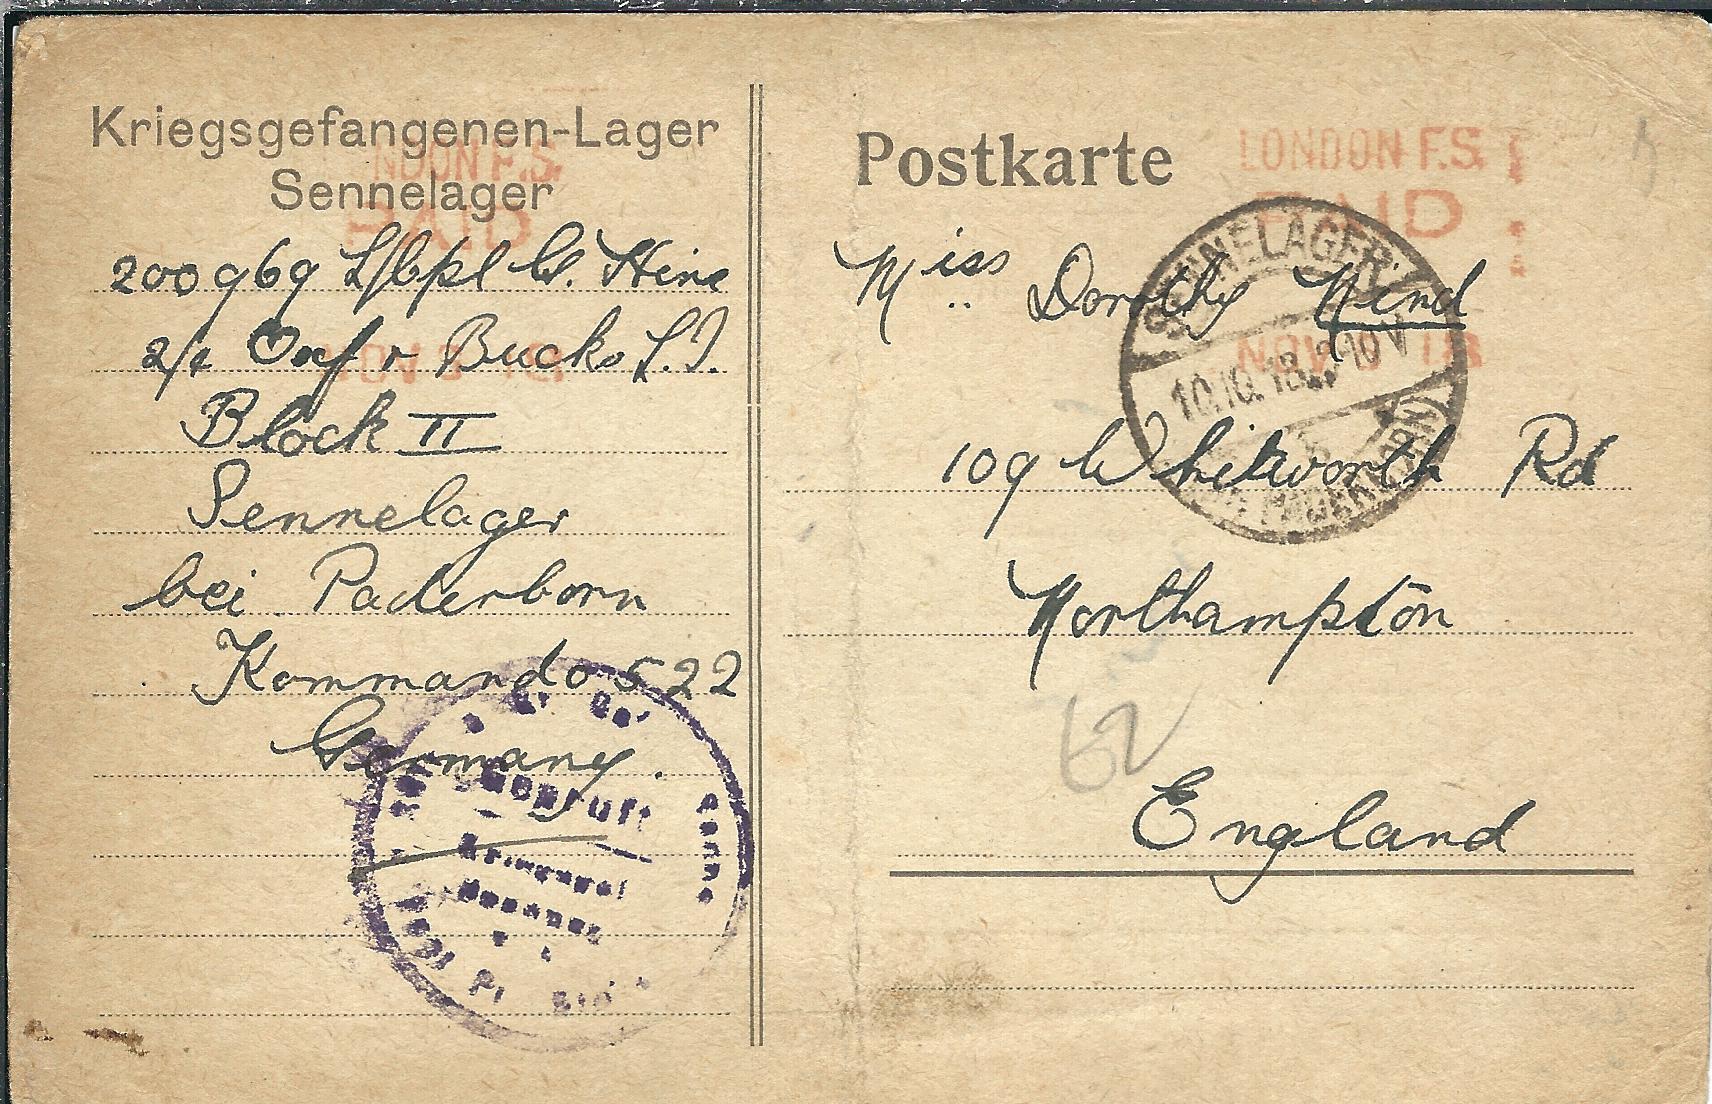 Kriegsgefangenen-Lager
Sennelager
200969 L/Cpl W. Hine
2/4 Oxf & Bucks L.I.
Block II
Sennelager
bei Paderborn
Kommando 522
Germany.
Postkarte
Miss Dorothy Hind
109 Whitworth Rd
Northampton
England
62
LONDON F.S.
PAID
NOV 18
NDON F.S.
PAID
NOV 18
SENNELAGER
10.10.18. 9-10 V
Geprüft